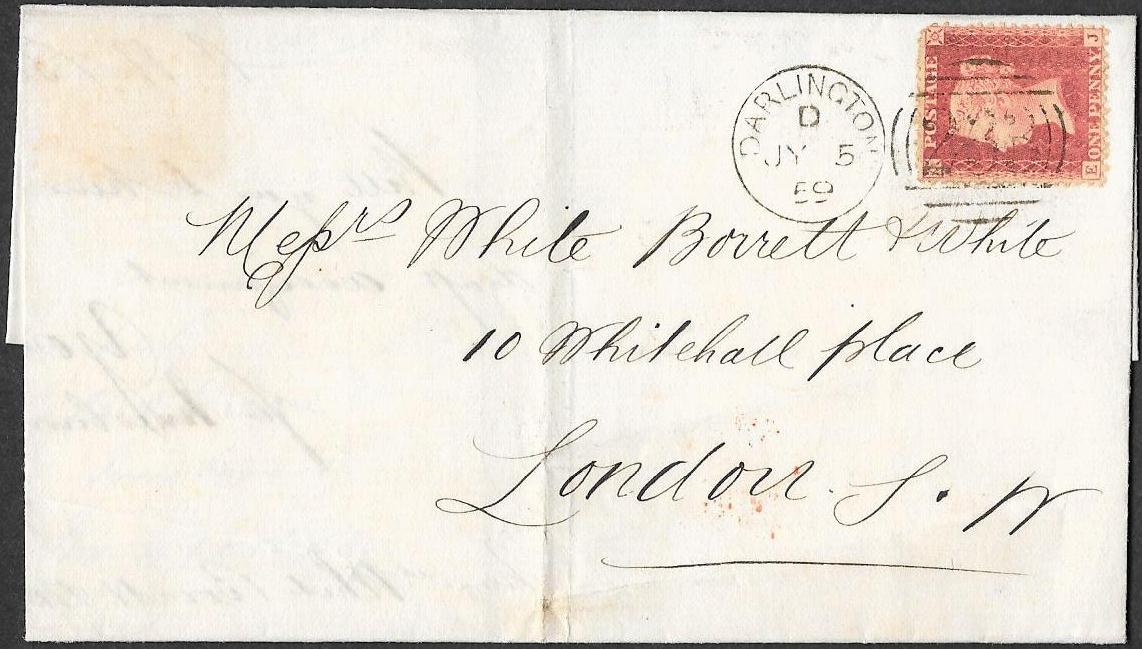 POSTAGE
ONE PENNY
J
E
DARLINGTON
D
JY 5
59
Messrs White Borrett & White
10 Whitehall place
London. S. W